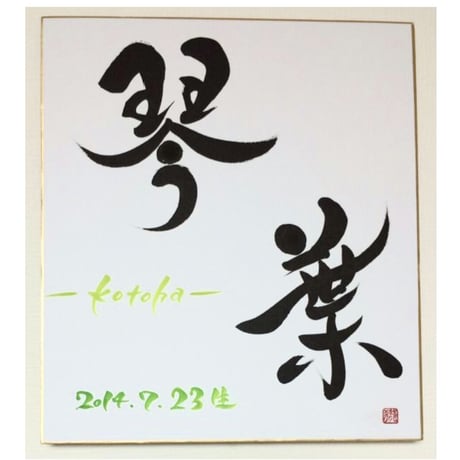 琴
葉
-kotoha-
2014.7.23生